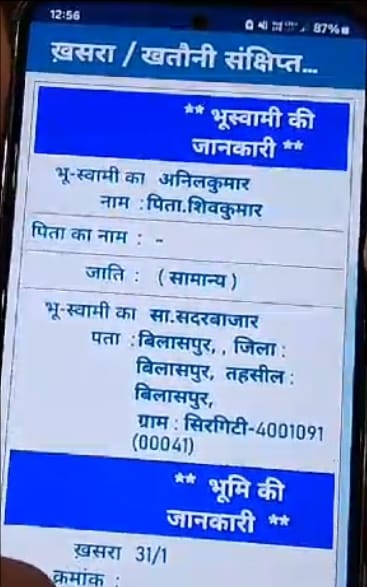 12:56
87%
ख़सरा / खतौनी संक्षिप्त...
** भूस्वामी की
जानकारी **
भू-स्वामी का अनिलकुमार
नाम : पिता.शिवकुमार
पिता का नाम : -
जाति : ( सामान्य )
भू-स्वामी का सा.सदरबाजार
पता : बिलासपुर, , जिला :
बिलासपुर, तहसील :
बिलासपुर,
ग्राम : सिरगिटी-4001091
(00041)
** भूमि की
जानकारी **
ख़सरा 31/1
क्रमांक :